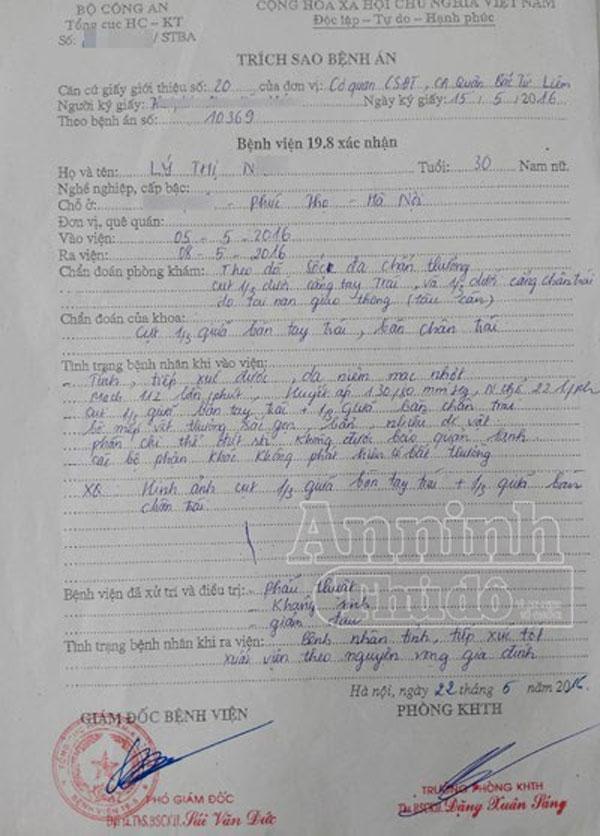 BỘ CÔNG AN
Tổng cục HC – KT
Số: / STBA
CỘNG HÒA XÃ HỘI CHỦ NGHĨA VIỆT NAM
Độc lập – Tự do – Hạnh phúc
TRÍCH SAO BỆNH ÁN
Căn cứ giấy giới thiệu số: 20 của đơn vị: Cơ quan CSĐT, CA Quận Bắc Từ Liêm
Người ký giấy: Ngày ký giấy: 15 / 5 / 2016
Theo bệnh án số: 10369
Bệnh viện 19.8 xác nhận
Họ và tên: LÝ THỊ N Tuổi: 30 Nam nữ.
Nghề nghiệp, cấp bậc:
Chỗ ở: - Phúc Thọ - Hà Nội
Đơn vị, quê quán:
Vào viện: 05 - 5 - 2016
Ra viện: 08 - 5 - 2016
Chẩn đoán phòng khám: Theo dõi sốc đa chấn thương
cụt 1/3 dưới cẳng tay Trái, và 1/3 dưới cẳng chân trái
do tai nạn giao thông (tàu cán)
Chẩn đoán của khoa:
Cụt 1/3 giữa bàn tay trái, bàn chân trái
Tình trạng bệnh nhân khi vào viện:
- Tỉnh, tiếp xúc được, da niêm mạc nhợt
- Mạch 112 lần/phút, Huyết áp 130/80 mmHg, N thở 22 l/ph
- Cụt 1/3 giữa bàn tay trái + 1/3 giữa bàn chân trái
bờ mép vết thương sắc gọn, bẩn, nhiều dị vật
phần chi thể đứt rời không được bảo quản lạnh
các bộ phận khác không phát hiện gì bất thường
XQ: Hình ảnh cụt 1/3 giữa bàn tay trái + 1/3 giữa bàn
chân trái
Anninh
Thủ đô
Bệnh viện đã xử trí và điều trị: - Phẫu thuật
- Kháng sinh
- giảm đau
Tình trạng bệnh nhân khi ra viện: Bệnh nhân tỉnh, tiếp xúc tốt
xuất viện theo nguyện vọng gia đình
Hà nội, ngày 22 tháng 6 năm 2016
GIÁM ĐỐC BỆNH VIỆN
PHÒNG KHTH
BỆNH VIỆN 19.8
PHÓ GIÁM ĐỐC
Bùi Văn Đức
TRƯỞNG PHÒNG KHTH
Ths.BSCKII. Đặng Xuân Sáng